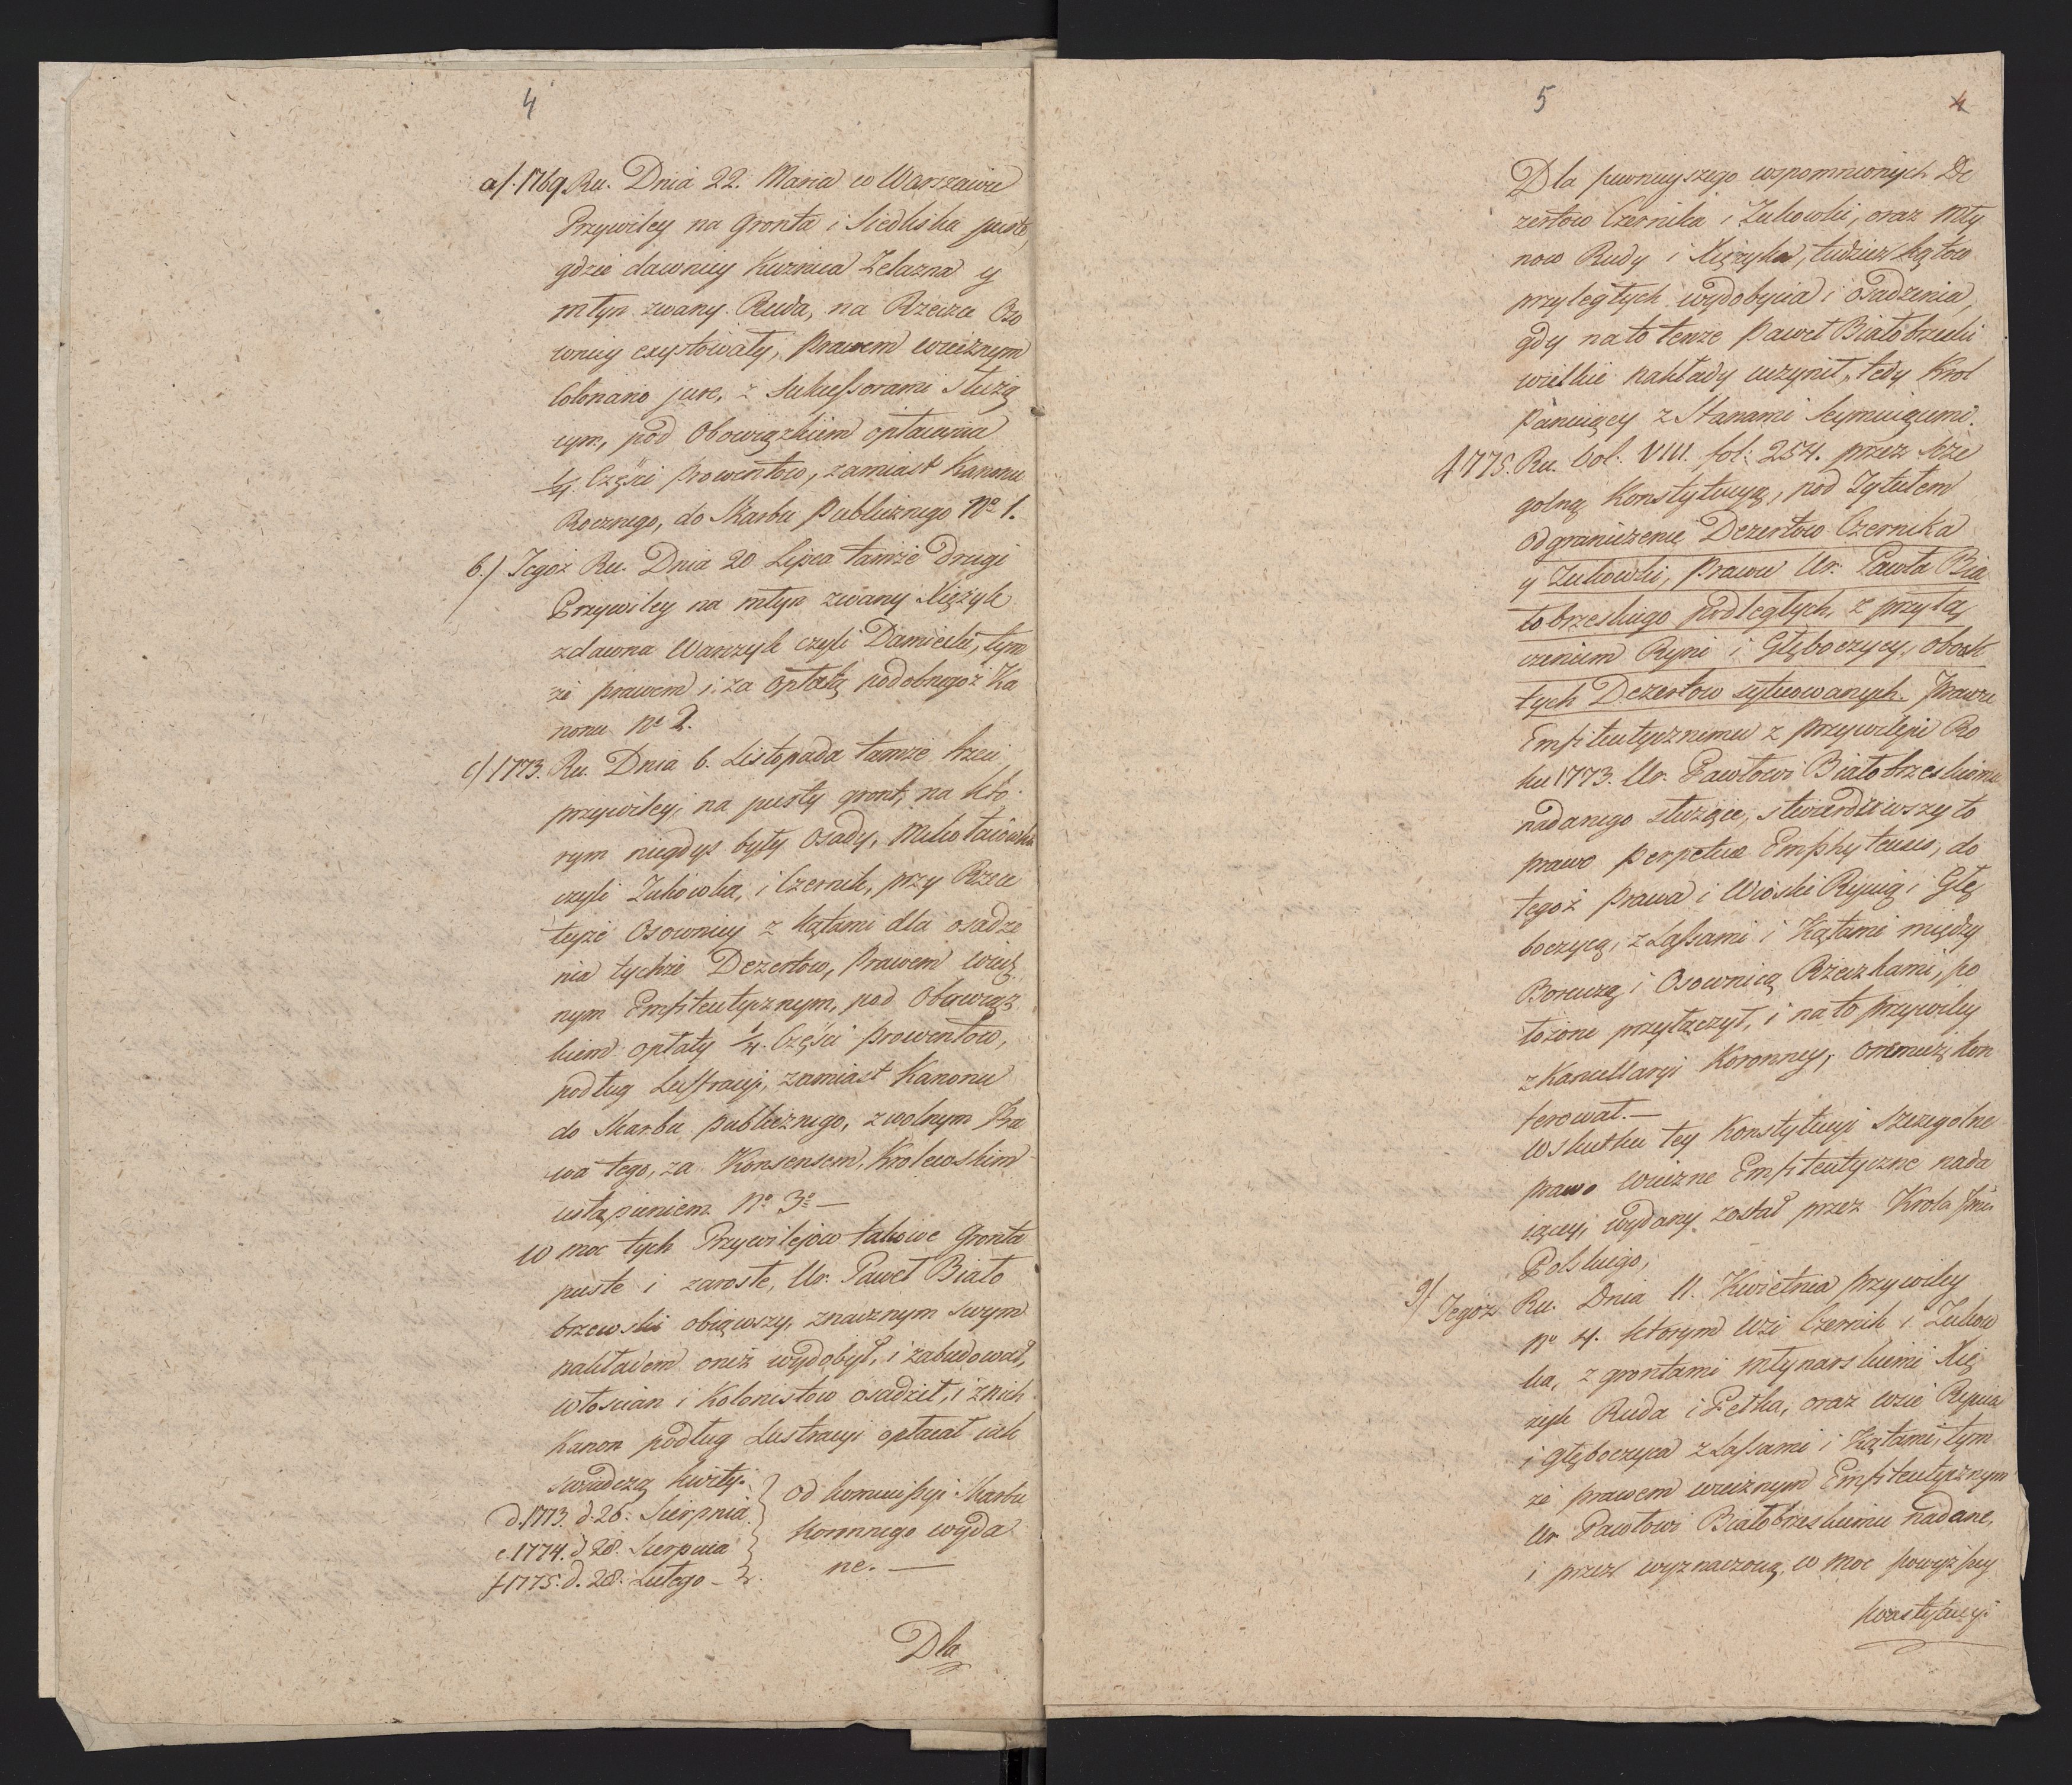 4
a/. 1769. Ru. Dnia 22. Marca w Warszawie
Przywiley na Gronta i Siedliska puste,
gdzie dawniey Kuznica Zelazna y
młyn zwany Ruda, na Rzeczce Oso
wnicy exystowały, prawem wieznym
Colonario jure, z Sukcessorami służą
cym, pod Obowiązkiem opłacania
1/4 Części prowentow, zamiast Kanonu
Rocznego, do Skarbu Publicznego No 1.
b./ Tegoż Ru. Dnia 20 Lipca tamże Drugi
Przywiley na młyn zwany Xiężyk
zdawna Warzyk czyli Damiecki, tym
że prawem i za opłatą podobnegoż Ka
nonu No 2.
c/ 1773. Ru. Dnia 6. Listopada tamże trzeci
przywiley, na pusty gront, na któ
rym niegdyś były Osady, Mikołaiówka
czyli Żukówka, i Czernik, przy Rzece
teyże Osownicy z kątami dla osadze
nia tychże Dezertow, Prawem wiecz
nym Emfiteutycznym, pod Obowiąz
kiem opłaty 1/4. Części prowentow,
podług Lustracyi, zamiast Kanonu
do Skarbu publicznego, z wolnym Pra
wa tego, za Konsensem, Krolewskim
ustąpieniem No 3o —
W moc tych Przywilejow takowe Gronta
puste i zarosłe, Ur. Paweł Biało
brzewski obiąwszy, znacznym swym
nakładem oneż wydobył, i zabudował,
włoscian i Kolonistow osadził, i z nich
Kanon podług Lustracyi opłacał iak
swiadczą kwity.
d. 1773. d. 26. Sierpnia
e. 1774. d 28. Sierpnia
f 1775. d. 28. Lutego —
od kommissyi Skarbu
Koronnego wyda
ne. —
Dla
5
4
Dla pewnieyszego wspomnionych De
zertow Czernika i Żukowki, oraz Mły
now Rudy i Xiężyka, tudzież kątow
przyległych wydobycia i osadzenia,
gdy na to tenże Paweł Białobrzeski
wielkie nakłady uczynił, tedy Krol
Panuiący z Stanami Seymuiącemi.
f 1775. Ru. Vol: VIII. fol: 254. przez szcze
golną Konstytucyą, pod Tytułem
Odgraniczenie Dezertow Czernika
y Żukowki, prawu Ur. Pawła Bia
łobrzeskiego podległych, z przyłą
czeniem Ryni i Głęboczycy, obok
tych Dezertow sytuowanych. Prawu
Emfiteutycznemu z przywileju Ro
ku 1773. Ur. Pawłowi Białobrzeskiemu
nadanego służące, stwierdziwszy to
prawo perpetua Emphyteusis, do
tegoż Prawa i Wioski Rynię i Głę
boczycą, z Lassami i Kątami między
Boruczą i Osownicą Rzeczkami, po
łożone przyłączył, i na to przywiley
z Kancellaryi Koronney, onemuż kon
ferował. —
W skutku tey Konstytucyi szczegolne
prawo wieczne Emfiteutyczne nada
iącey, wydany został przez Krola Jmci
Polskiego,
g/ Tegoż Ru. Dnia 11. Kwietnia przywiley
No 4. ktorym Wsi Czernik i Żukow
ka, z grontami młynarskiemi Xię
życk Ruda i Fetka, oraz wsie Rynia
i Głęboczyca z Lassami i Kątami, tym
że prawem wiecznym Emfiteutycznym
Ur. Pawłowi Białobrzeskiemu nadane,
i przez wyznaczoną, w moc powyższey
Konstytucyi